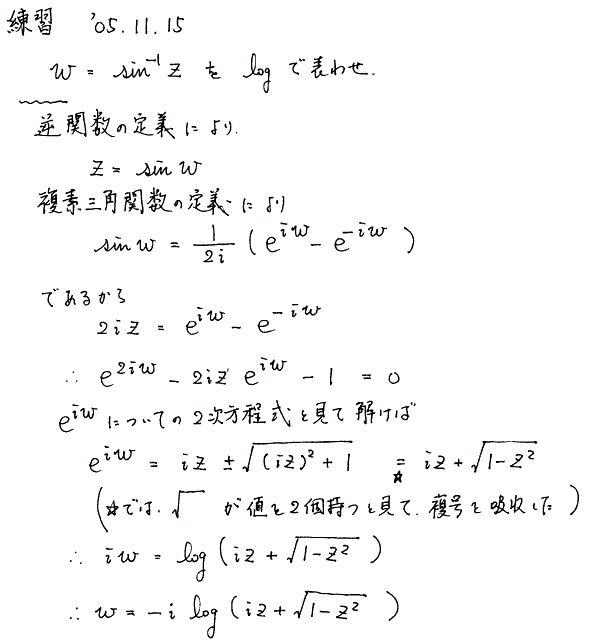 練習 '05.11.15
w = sin⁻¹ z を log で表わせ.
逆関数の定義により.
z = sin w
複素三角関数の定義により
sin w = 1/2i ( e^{iw} - e^{-iw} )
であるから
2iz = e^{iw} - e^{-iw}
∴ e^{2iw} - 2iz e^{iw} - 1 = 0
e^{iw} についての2次方程式と見て解けば
e^{iw} = iz ± √((iz)² + 1) =☆ iz + √(1-z²)
(☆では, √ が値を2個持つと見て, 複号を吸収した)
∴ iw = log ( iz + √(1-z²) )
∴ w = -i log ( iz + √(1-z²) )